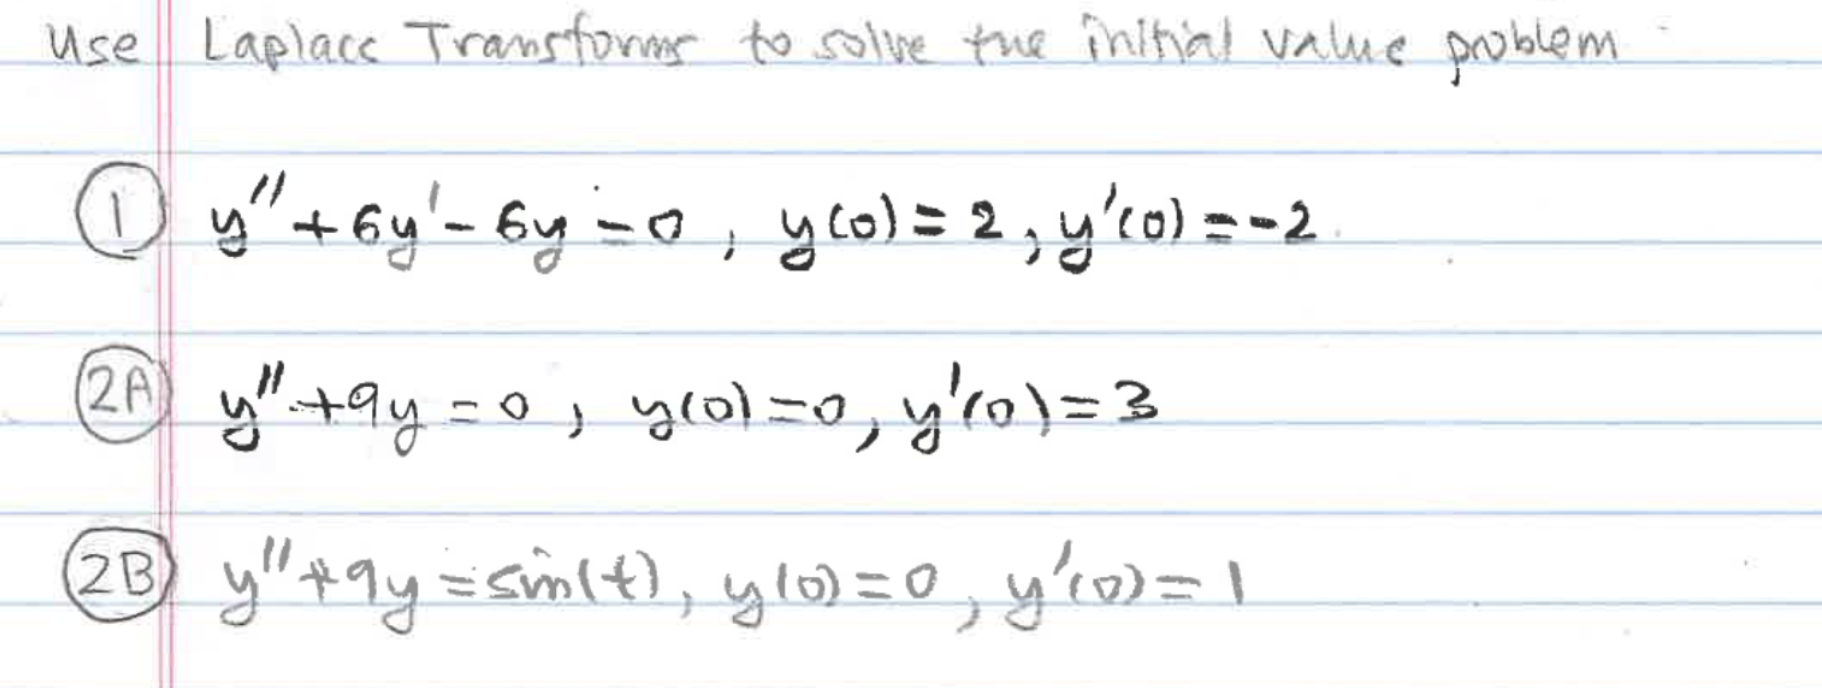 Use Laplace Transforms to solve the initial value problem
① y'' + 6y' - 6y = 0, y(0) = 2, y'(0) = -2
2A y'' + 9y = 0, y(0) = 0, y'(0) = 3
2B y'' + 9y = sin(t), y(0) = 0, y'(0) = 1